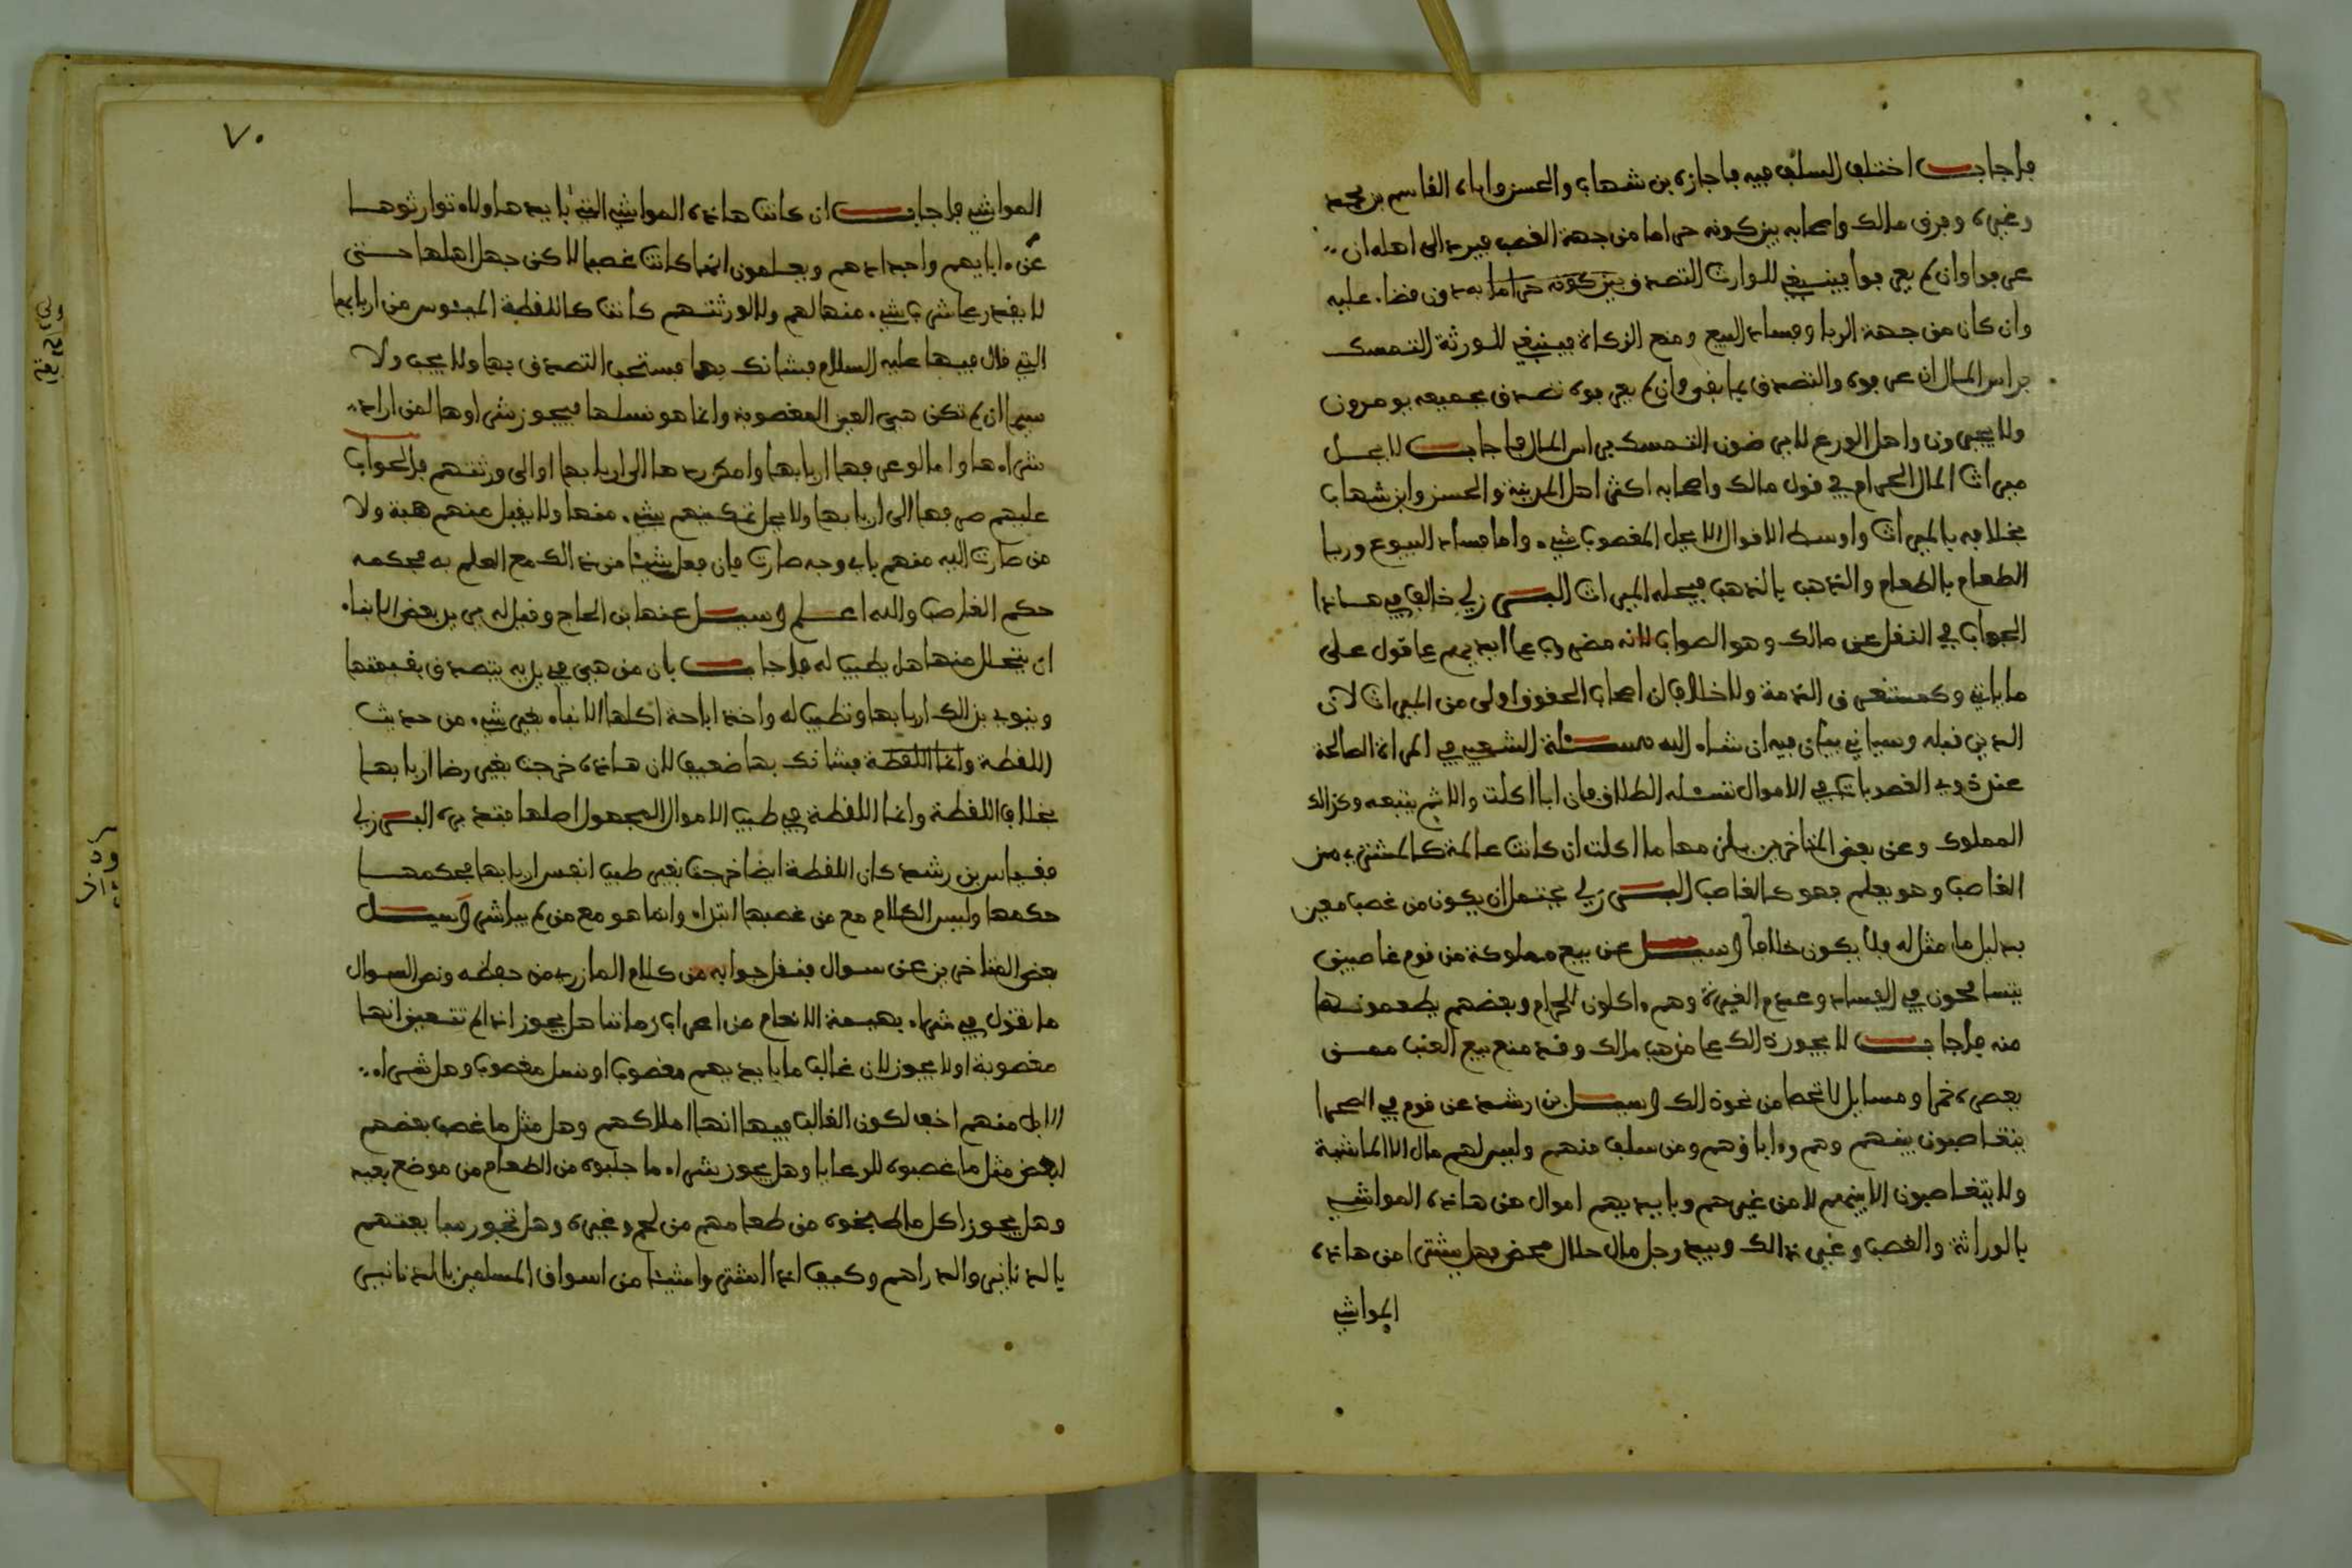 فاجاب اختلف السلف فيه فاجازه بن شهاب والحسن واباه القاسم بن محمد
وغيره وفرق مالك واصحابه بين كونه حراما من جهة الغصب فيرد الى اهله ان
عرفوا وان لم يعرفوا فينبغي للوارث التصدق بين كونه حراما به دون قضاء عليه
وان كان من جهة الربا وفساد البيع ومنع الزكاة فينبغي للورثة التمسك
براس المال ان عرفوه والتصدق بما بقي وان لم يعرفوه تصدق بجميعه يومرون
ولا يجبرون واهل الورع لا يرضون التمسك براس المال فاجاب لا يحل
ميراث المال الحرام في قول مالك واصحابه اكثر اهل المدينة والحسن وابن شهاب
بخلافه بالميراث واوسط الاقوال الا يحل المغصوب شيء واما فساد البيوع وربا
الطعام بالطعام والذهب بالذهب فيحله الميراث البرزلي خالف في هاذا
الجواب في النقل عن مالك وهو الصواب لانه مضروب على ايديهم على قول على
ما ياتي وكمستغرق الذمة ولا خلاف ان اصحاب الحقوق اولى من الميراث لان
الدين قبله وسياتي بيان فيه ان شاء الله مسئلة الشعبي في المراة الصالحة
عند ذوي الغصوبات في الاموال تسئله الطلاق فان ابا اكلت والاثم يتبعه وكذالك
المملوك وعن بعض المتاخرين يلزمها ما اكلت ان كانت عالمة كالمشتري من
الغاصب وهو يعلم فهو كالغاصب البرزلي يحتمل ان يكون من غصب معين
بدليل ما مثل له فلا يكون خلافا وسيل عن بيع مملوكة من قوم غاصبين
يتسامحون في الفساد وعدم الغيرة وهم ءاكلون الحرام وبعضهم يطعمونها
منه فاجاب لا يجوز ذالك على مذهب مالك وقد منع بيع العنب ممن
يعصره خمرا ومسايل لا تحصا من نحو ذالك وسيل بن رشد عن قوم في الصحرا
يتغاصبون بينهم وهم وءاباؤهم ومن سلف منهم وليس لهم مال الا الماشية
ولا يتغاصبون الا بينهم لا من غيرهم وبايديهم اموال من هاذه المواشي
بالوراثة والغصب وغير ذالك وبيد رجل مال حلال محض فهل يشتري من هاذه
المواشي
٧٠
المواشي فاجاب ان كانت هاذه المواشي التي بايد هاولاء توارثوها
عن ءابايهم واجدادهم ويعلمون انها كانت غصبا لاكن جهل اهلها حتى
لا يقدر على شيء منها لهم ولا لورثتهم كانت كاللقطة الميئوس من اربابها
التي قال فيها عليه السلام فشانك بها فيستحب التصدق بها ولا يجب ولا
سيما ان لم تكن هي العين المغصوبة وانما هو نسلها فيجوز شراوها لمن اراد
شراءها واما لو عرف اربابها وامكن ردها الى اربابها او الى ورثتهم فالجواب
عليهم صرفها الى اربابها ولا يحل تمكينهم بشيء منها ولا يقبل عنهم هبة ولا
من صارت اليه منهم باي وجه صارت فان فعل شيئا من ذالك مع العلم به فحكمه
حكم الغاصب والله اعلم وسيل عنها بن الحاج وقيل له يريد بعض الابناء
ان يتحلل منها هل يطيب له فاجاب بان من هي في يديه يتصدق بقيمتها
وينوي بذالك اربابها وتطيب له واخذ اباحة اكلها الابناء بغير شيء من حديث
اللقطة وانما اللقطة فشانك بها ضعيف لان هاذه خرجت بغير رضا اربابها
بخلاف اللقطة وانما اللقطة في طيب الاموال المجهول اصلها فتدبره البرزلي
فقياس بن رشد كان اللقطة ايضا خرجت بغير طيب انفس اربابها فحكمها
حكمها وليس الكلام مع من غصبها ابتداء وانما هو مع من لم يباشر وسيل
بعض المتاخرين عن سوال فنقل جوابه من كلام المازري من حفظه ونص السوال
ما تقول في شراء بهيمة الانعام من اعراب زماننا هل يجوز اذا لم تتعين انها
مغصوبة او لا يجوز لان غالب ما بايديهم مغصوب او نسل مغصوب وهل شراء
الابل منهم اخف لكون الغالب فيها انها املاكهم وهل مثل ما غصب بعضهم
لبعض مثل ما غصبوه للرعايا وهل يجوز شراء ما جلبوه من الطعام من موضع بعيد
وهل يجوز اكل ما طبخوه من طعامهم من لحم وغيره وهل تجوز مبايعتهم
بالدنانير والدراهم وكيف اذا اشتروا شيئا من اسواق المسلمين بالدنانير